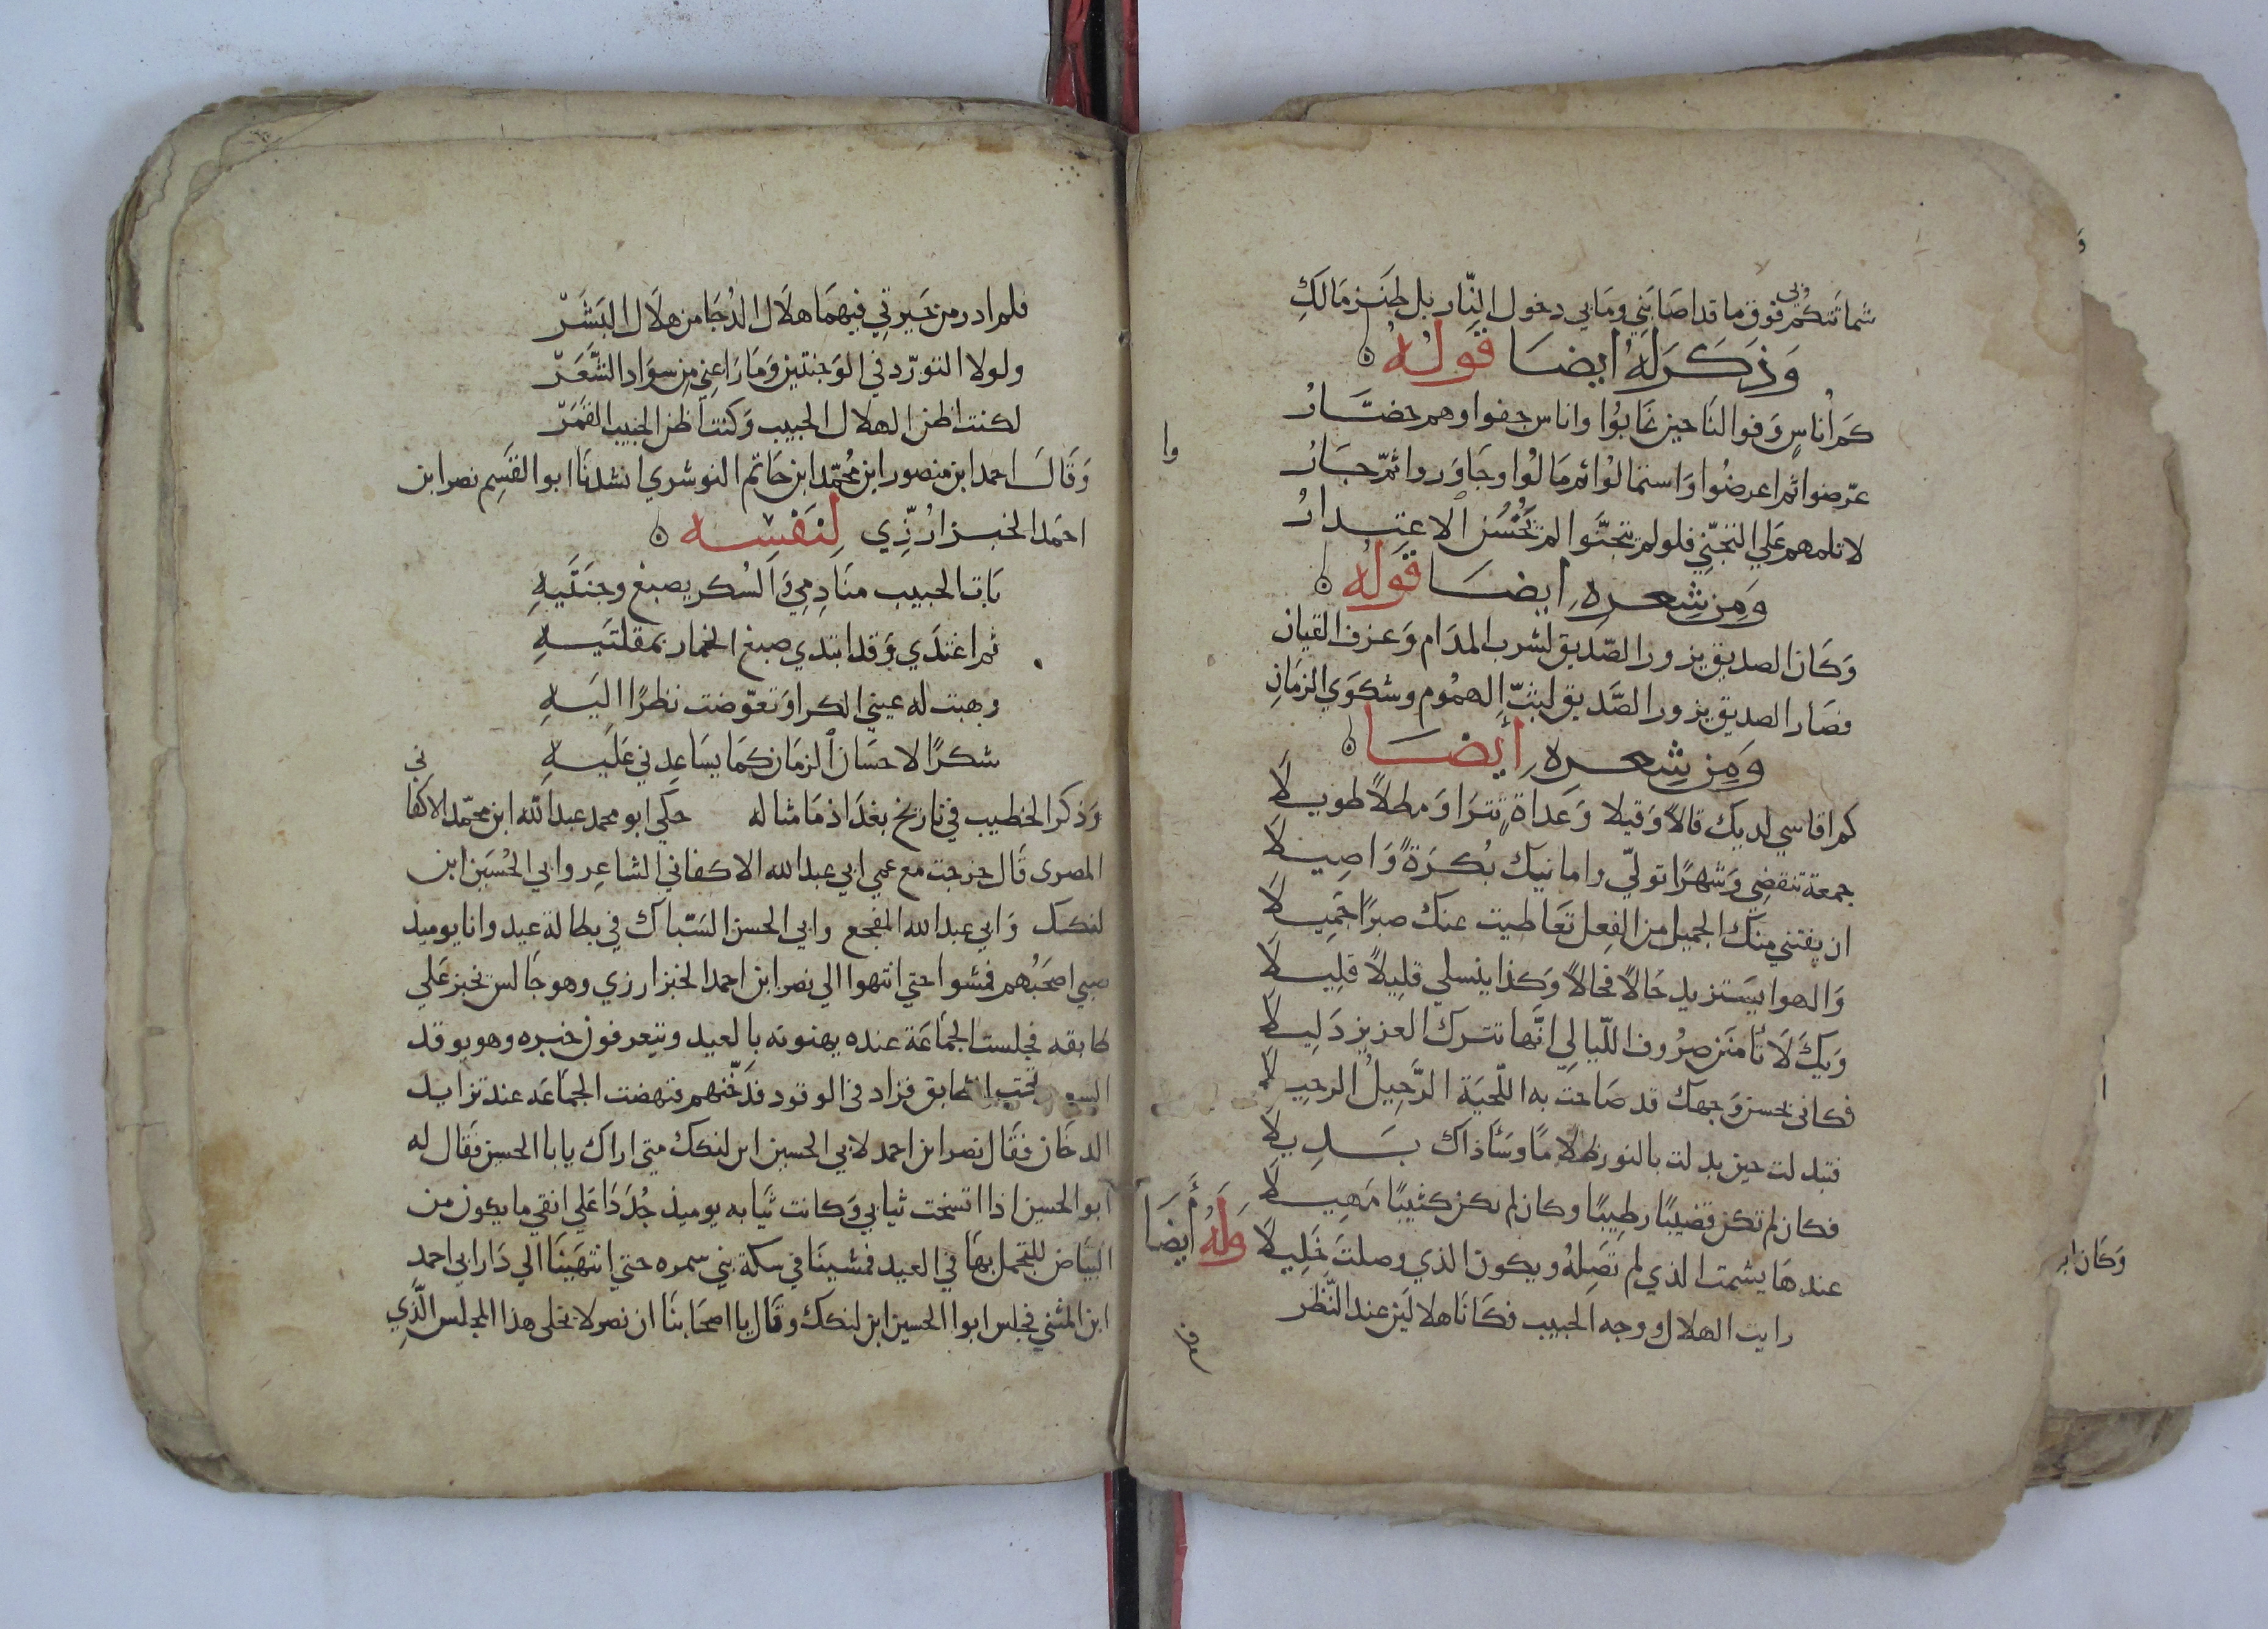 شماتتكم بي فوق ما قد اصَابَني ومَا بي دخول النّار بل طنز مَالكِ
وَذكَرَ لهُ ايضا قولهُ
كمْ أُناسٍ وَفوا لنَا حين غابُوا واناس جفوا وهم حضّارُ
عرّضوا ثم اعرضُوا وَاستمالوُا ثم مَالوُا وجَاوَروا ثمّ جارُ
لا تلمهم عَلي التجنّي فلو لم يتجنَّوا لم تحْسُن الاعتدارُ
وَمن شِعرهِ ايضا قَولهُ
وَكَان الصديق يزور الصّديق لشرب المدَام وَعزف القيان
فصَار الصديق يزور الصَّديق لبثّ الهمُوم وشكوَي الزمَانِ
وَمِن شِعره أيضَا
كم اقاسي لديك قالاً وَقيلا وَعداةٍ تترَا وَمطلاً طويلاَ
جمعة تنقضِي وَشهرًا تولّي وامانيك بُكرَةً وَاصِيلاَ
ان يفتني منك الجميل من الفِعل تعَاطيت عنك صبرًا جَمِيلاَ
وَالهوا يستزيد حَالاً فحالاً وَكذا ينسلي قلِيلاً قلِيلاَ
وَيكَ لاَ تأمنَن صرُوف اللّيالِي انّها تترك العزيز دَلِيلاَ
فكاني بحسن وَجهك قد صَاحت به اللّحيَة الرَّحِيلُ الرحِيلاَ
فتبدلت حين بدلت بالنور ظلامًا وسَأ ذاك بَدِيلاَ
فكان لم تكن قضيبًا رطِيبًا وكان لم تكن كثيبًا مَهِيلاَ
عندهَا يشمت الذي لم تصِلهُ ويكون الذي وصلتَ خَلِيلاَ وَلهُ أيضَا
رايت الهلال ووجه الحبيب فكانَا هلالَين عند النَّظَر
فلم ادر من حَيرتي فيهمَا هلاَل الدُجَا من هلاَل البَشَرّ
ولولا التورّد في الوَجنتين وَمَا رَاعني مِن سوَاد الشَّعَرّ
لكنت اظن الهلال الحبيب وَكنت أظن الحبيب القَمَرّ
وَقَالَ احمد ابن منصور ابن مُحمّد ابن حَاتم النوشري انشدنَا ابو القسِم نصر ابن
احمَد الخبزارُزّي لنَفْسِه
بَات الحبيب منَادِمِي وَالسُكر يصبغ وجنَتَيهِ
ثم اغتدَي وَقد ابتدي صبغ الخمار بمقلتَيهِ
وهبت له عيني الكرا وَتعوّضت نظرًا اليَهِ
شكرًا لاحسَان الزمَان كمَا يسَاعِدني عَلَيهِ
وَذكر الخطيب في تاريخ بغدَاد مَا مثاله حَكي ابو محمد عبد الله ابن محمّد الاكفاني
المصرى قَال خرجت مع عمي ابي عبد الله الاكفاني الشاعِر وابي الحُسَين ابن
لنكك وَابي عبد الله المفجع وابي الحسن السَبّاك في بطالة عيد وانا يوميذ
صبي اصحَبُهم فمشوا حتي انتهوا الي نصر ابن احمد الخبزارزي وهو جَالس يخبز عَلي
طابقه فجلست الجَمَاعَة عنده يهنونه بالعيد ويتعرفون خبره وهو يوقد
السعف تحت الطابق فزاد في الوقود فدخّنهم فنهضت الجمَاعَه عند تزايد
الدخَان فقَال نصر ابن احمد لابي الحسين ابن لنكك متى اراك يابا الحسين فقَال له
ابو الحسين اذا اتسخت ثيابي وَكانت ثيَابه يوميذ جُدَدًا عَلي انقي ما يكون من
البيَاض للتجمل بهَا في العيد فمشينَا في سكة بني سمره حتى انتهَينَا الي دَار ابي احمد
ابن المثني فجلس ابوا الحسين ابن لنكك وقَال يا اصحَابنَا ان نصر لا يخلى هذا المجلس الَّذِي
وَكَان ابو